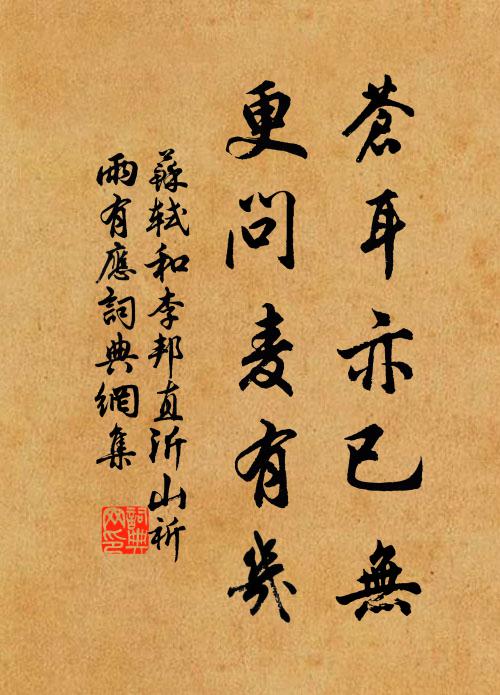 蒼耳亦已無
更問麦有幾
蘇軾和李邦直沂山祈
雨有應詞典網集
詞典
网印